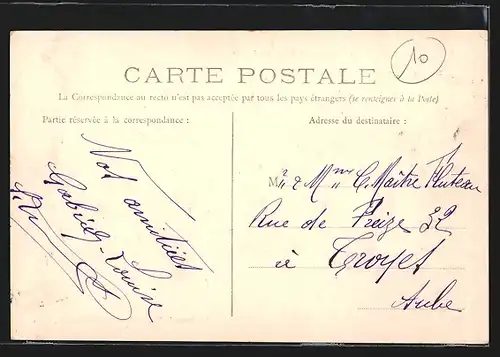 10
CARTE POSTALE
La Correspondance au recto n'est pas acceptée par tous les pays étrangers (se renseigner à la Poste)
Partie réservée à la correspondance :
Adresse du destinataire :
Nos amitiés
Gabriel-Louise
Mr & Mme C. Maître
Rue de Preize 32
à Troyes
Aube